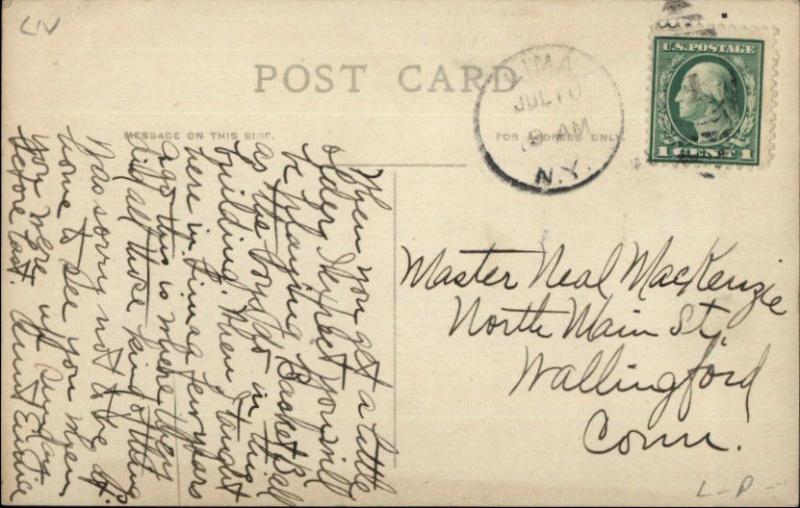 LIV
POST CARD
MESSAGE ON THIS SIDE.
FOR ADDRESS ONLY.
LIMA
JUL 10
AM
N.Y.
U.S. POSTAGE
1 CENT 1
When you get a little
older I expect you will
be playing Basket Ball
as the boys do in this
building. When I taught
here in Lima few years
ago this is where they
did all those kind of things
Was sorry not to be at
home to see you when
you were up Sunday
before last. Aunt Eunice
Master Neal MacKenzie
North Main St.,
Wallingford
Conn.
L-P-